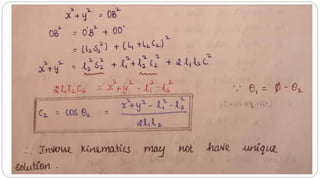 x² + y² = OB²
OB² = O'B² + OO'²
= (l₂S₂)² + (l₁ + l₂C₂)²
x² + y² = l₂²S₂² + l₁² + l₂²C₂² + 2l₁l₂C²
2l₁l₂C₂ = x² + y² - l₁² - l₂²
∵ θ₁ = ϕ - θ₂
C₂ = cos θ₂ = x² + y² - l₁² - l₂² / 2l₁l₂
∴ Inverse kinematics may not have unique
solution.